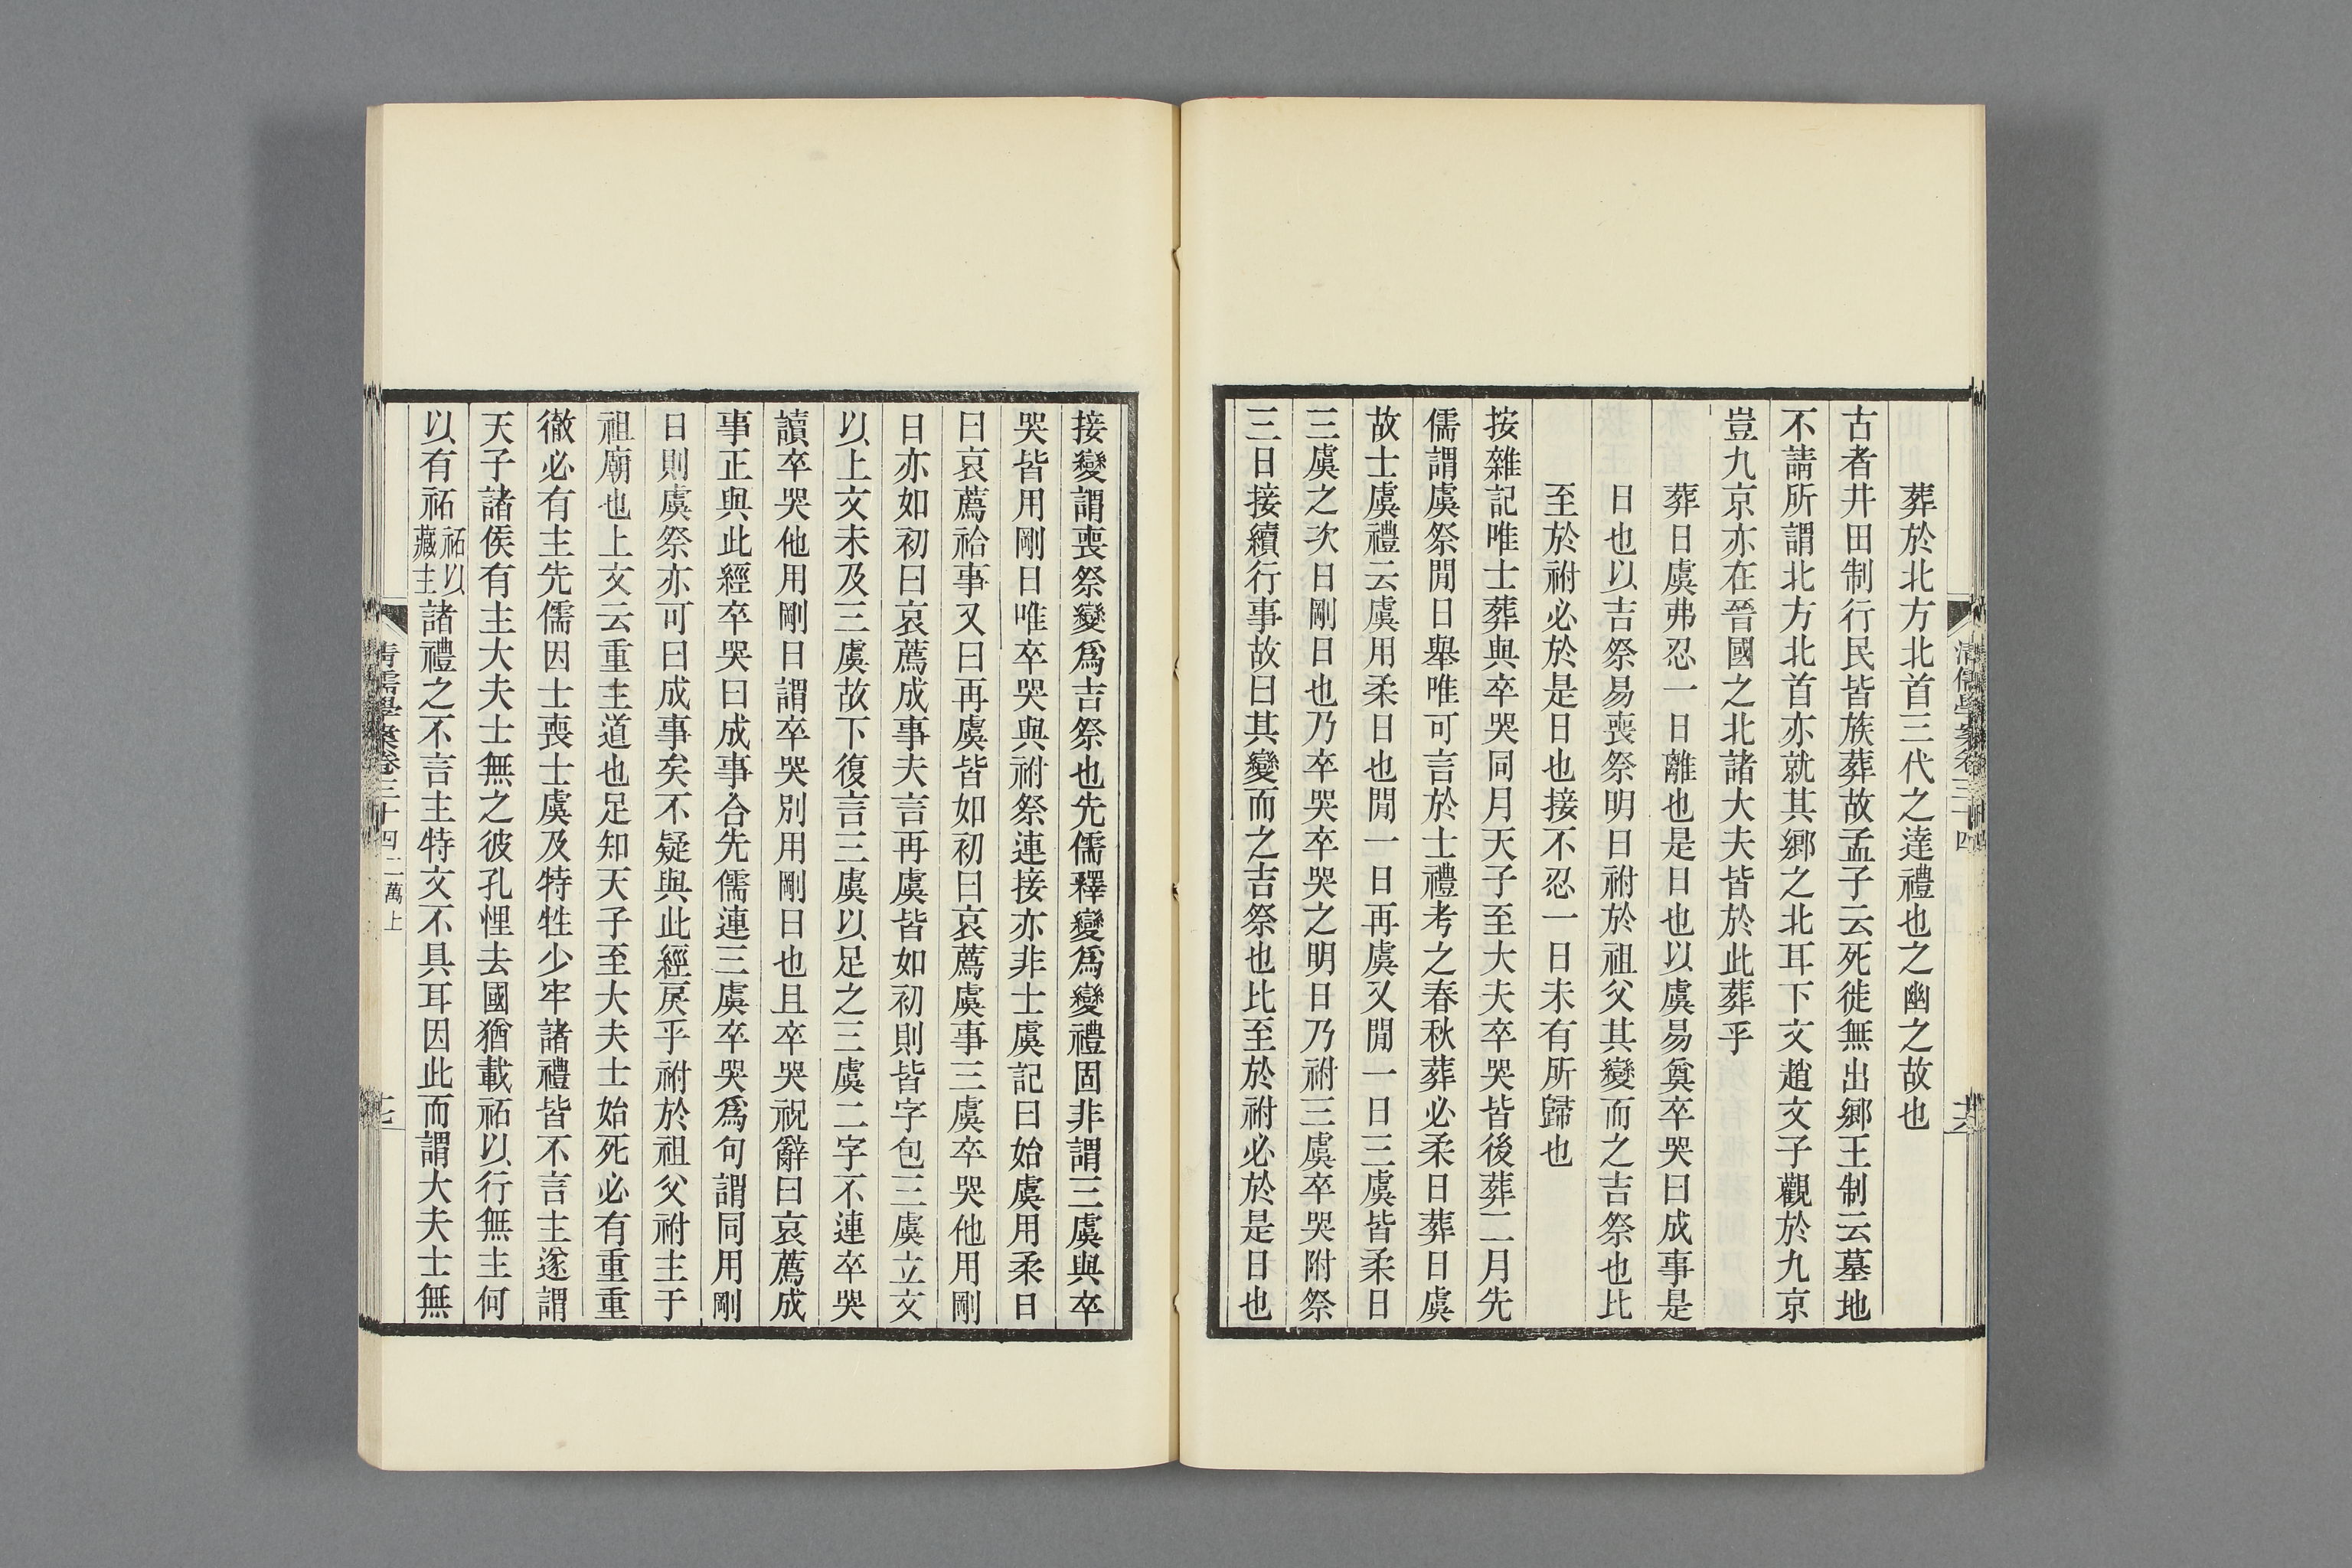 葬於北方北首三代之達禮也之幽之故也
古者井田制行民皆族葬故孟子云死徙無出鄉王制云墓地
不請所謂北方北首亦就其鄉之北耳下文趙文子觀於九京
豈九京亦在晉國之北諸大夫皆於此葬乎
葬日虞弗忍一日離也是日也以虞易奠卒哭曰成事是
日也以吉祭易喪祭明日祔於祖父其變而之吉祭也比
至於祔必於是日也接不忍一日未有所歸也
按雜記唯士葬與卒哭同月天子至大夫卒哭皆後葬二月先
儒謂虞祭閒日舉唯可言於士禮考之春秋葬必柔日葬日虞
故士虞禮云虞用柔日也閒一日再虞又閒一日三虞皆柔日
三虞之次日剛日也乃卒哭卒哭之明日乃祔三虞卒哭附祭
三日接續行事故曰其變而之吉祭也比至於祔必於是日也
接變謂喪祭變爲吉祭也先儒釋變爲變禮固非謂三虞與卒
哭皆用剛日唯卒哭與祔祭連接亦非士虞記曰始虞用柔日
曰哀薦祫事又曰再虞皆如初曰哀薦虞事三虞卒哭他用剛
日亦如初曰哀薦成事夫言再虞皆如初則皆字包三虞立文
以上文未及三虞故下復言三虞以足之三虞二字不連卒哭
讀卒哭他用剛日謂卒哭別用剛日也且卒哭祝辭曰哀薦成
事正與此經卒哭曰成事合先儒連三虞卒哭爲句謂同用剛
日則虞祭亦可曰成事矣不疑與此經戾乎祔於祖父祔主于
祖廟也上文云重主道也足知天子至大夫士始死必有重重
徹必有主先儒因士喪士虞及特牲少牢諸禮皆不言主遂謂
天子諸侯有主大夫士無之彼孔悝去國猶載祏以行無主何
以有祏祏以藏主諸禮之不言主特文不具耳因此而謂大夫士無
清儒學案卷三十四二萬上